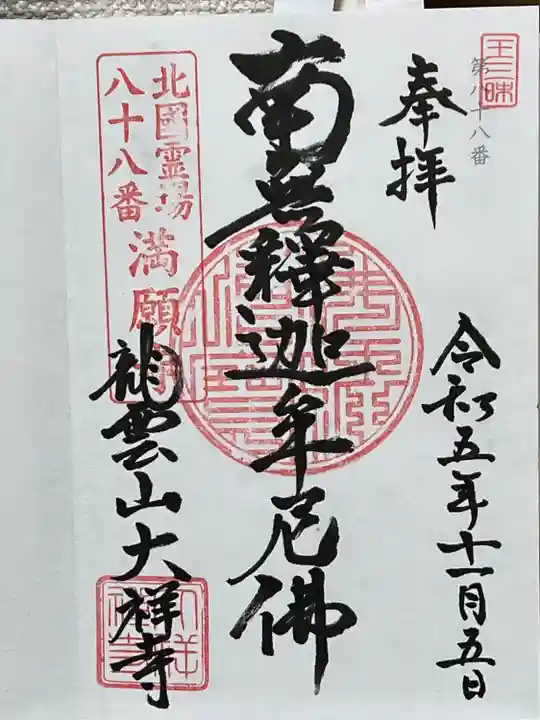 王三昧
第八十八番
奉拝
令和五年十一月五日
南無釋迦牟尼佛
北國霊場
八十八番
満願
龍雲山大祥寺
大祥寺